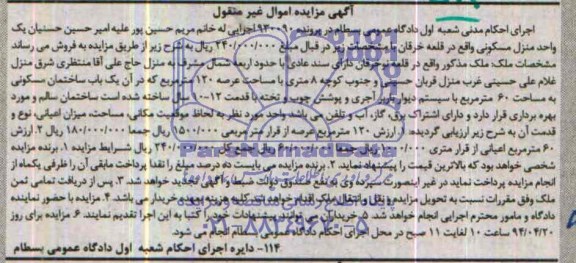 آگهی مزایده اموال غیر منقول
اجرای احکام مدنی شعبه اول دادگاه عمومی بسطام در پرونده ۹۳۰۰۹۰ اجرایی له خانم مریم حسین پور علیه امیر حسین حسنیان یک
واحد منزل مسکونی واقع در قلعه خرقان با مشخصات زیر در قبال مبلغ ۲۴۰/۰۰۰/۰۰۰ ریال به شرح زیر از طریق مزایده به فروش می رساند
مشخصات ملک: ملک مذکور واقع در قلعه نوخرقان دارای سند عادی با حدود اربعه شمال مشرف به منزل حاج علی آقا منتظری شرق منزل
غلام علی حسینی غرب منزل قربان حسینی و جنوب کوچه ۸ متری با مساحت عرصه ۱۲۰ مترمربع که در آن یک باب ساختمان مسکونی
به مساحت ۶۰ مترمربع با سیستم دیوار باربر آجری و پوشش چوب و تخته با قدمت ۱۲-۱۰ سال ساخته شده است ساختمان سالم و مورد
بهره برداری قرار دارد و دارای اشتراک برق، گاز، آب و تلفن می باشد واحد مورد نظر به لحاظ موقعیت مکانی، مساحت، میزان اعیانی، نوع و
قدمت آن به شرح زیر ارزیابی گردیده: ۱. ارزش ۱۲۰ مترمربع عرصه از قرار متر مربعی ۱/۵۰۰/۰۰۰ ریال جمعا ۱۸۰/۰۰۰/۰۰۰ ریال ۲. ارزش
۶۰ مترمربع اعیانی از قرار متری ریال جمعا ریال جمع کل ۲۴۰/۰۰۰/۰۰۰ ریال شرایط مزایده ۱. برنده مزایده
شخصی خواهد بود که بالاترین قیمت را پیشنهاد نماید ۲. برنده مزایده می بایست ده درصد مبلغ را نقدا پرداخت مابقی آن را ظرف یکماه از
انجام مزایده پرداخت نماید در غیر اینصورت سپرده وی به نفع صندوق دولت ضبط و آگهی تجدید خواهد شد. ۳. پس از دریافت تمامی ثمن
ملک وفق مقررات نسبت به تحویل مزایده و نقل و انتقال ملک اقدام خواهد شد. کلیه هزینه بعهده خریدار می باشد. ۴. مزایده با حضور نماینده
دادگاه و مامور محترم اجرایی انجام خواهد شد ۵. خریداران می توانند پیشنهادات خود را کتبا به این اجرا تقدیم نمایند. ۶. مزایده برای روز
۹۴/۰۴/۲۰ ساعت ۱۰ لغایت ۱۱ صبح در محل اجرای احکام دادگاه عمومی بسطام انجام می شود.
۱۱۴- دایره اجرای احکام شعبه اول دادگاه عمومی بسطام